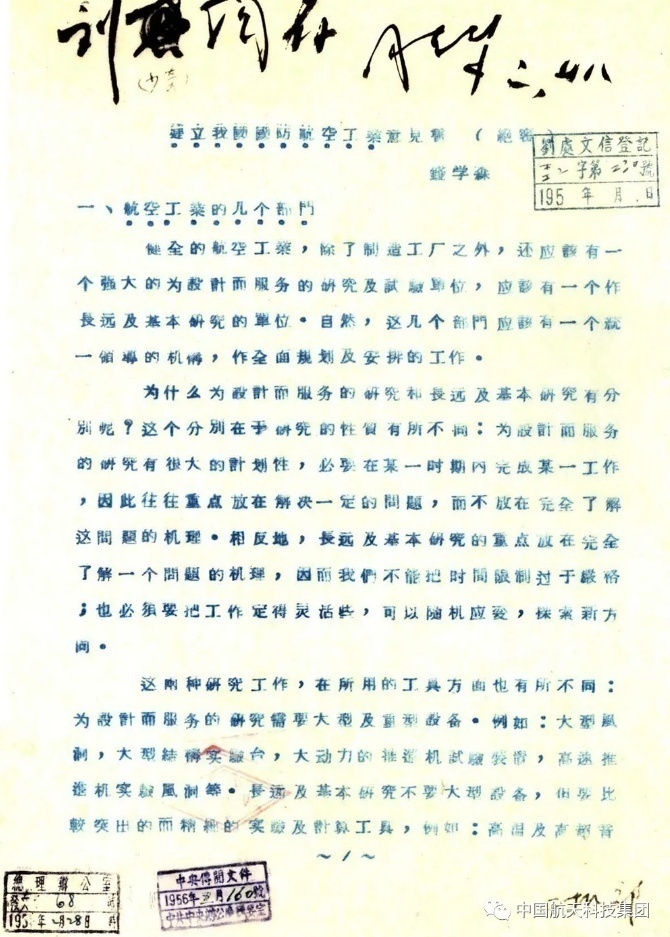 建立我國國防航空工業意見書（絕密）
劉處文信登記
字第 號
195 年 月 日
錢学森
一、航空工業的几个部門
健全的航空工業，除了制造工厂之外，还应該有一
个強大的为設計而服务的研究及試驗單位，应該有一个作
長远及基本研究的單位。自然，这几个部門应該有一个統
一領導的机構，作全面規划及安排的工作。
为什么为設計而服务的研究和長远及基本研究有分
別呢？这个分別在于研究的性質有所不同：为設計而服务
的研究有很大的計划性，必要在某一时期內完成某一工作
，因此往往重点放在解决一定的問題，而不放在完全了解
这問題的机理。相反地，長远及基本研究的重点放在完全
了解一个問題的机理，因而我們不能把时間限制过于嚴格
；也必須要把工作定得灵活些，可以随机应变，探索新方
向。
这兩种研究工作，在所用的工具方面也有所不同：
为設計而服务的研究需要大型及重型設备。例如：大型風
洞，大型結構实驗台，大动力的推進机試驗裝置，高速推
進机实驗風洞等。長远及基本研究不要大型設备，但要比
較突出的而精細的实驗及計算工具，例如：高温及高超音
～1～
總理辦公室
發文 68 號
195 年 月28日
中央傳閱文件
1956年 月160號
中共中央辦公廳機要室
中国航天科技集团